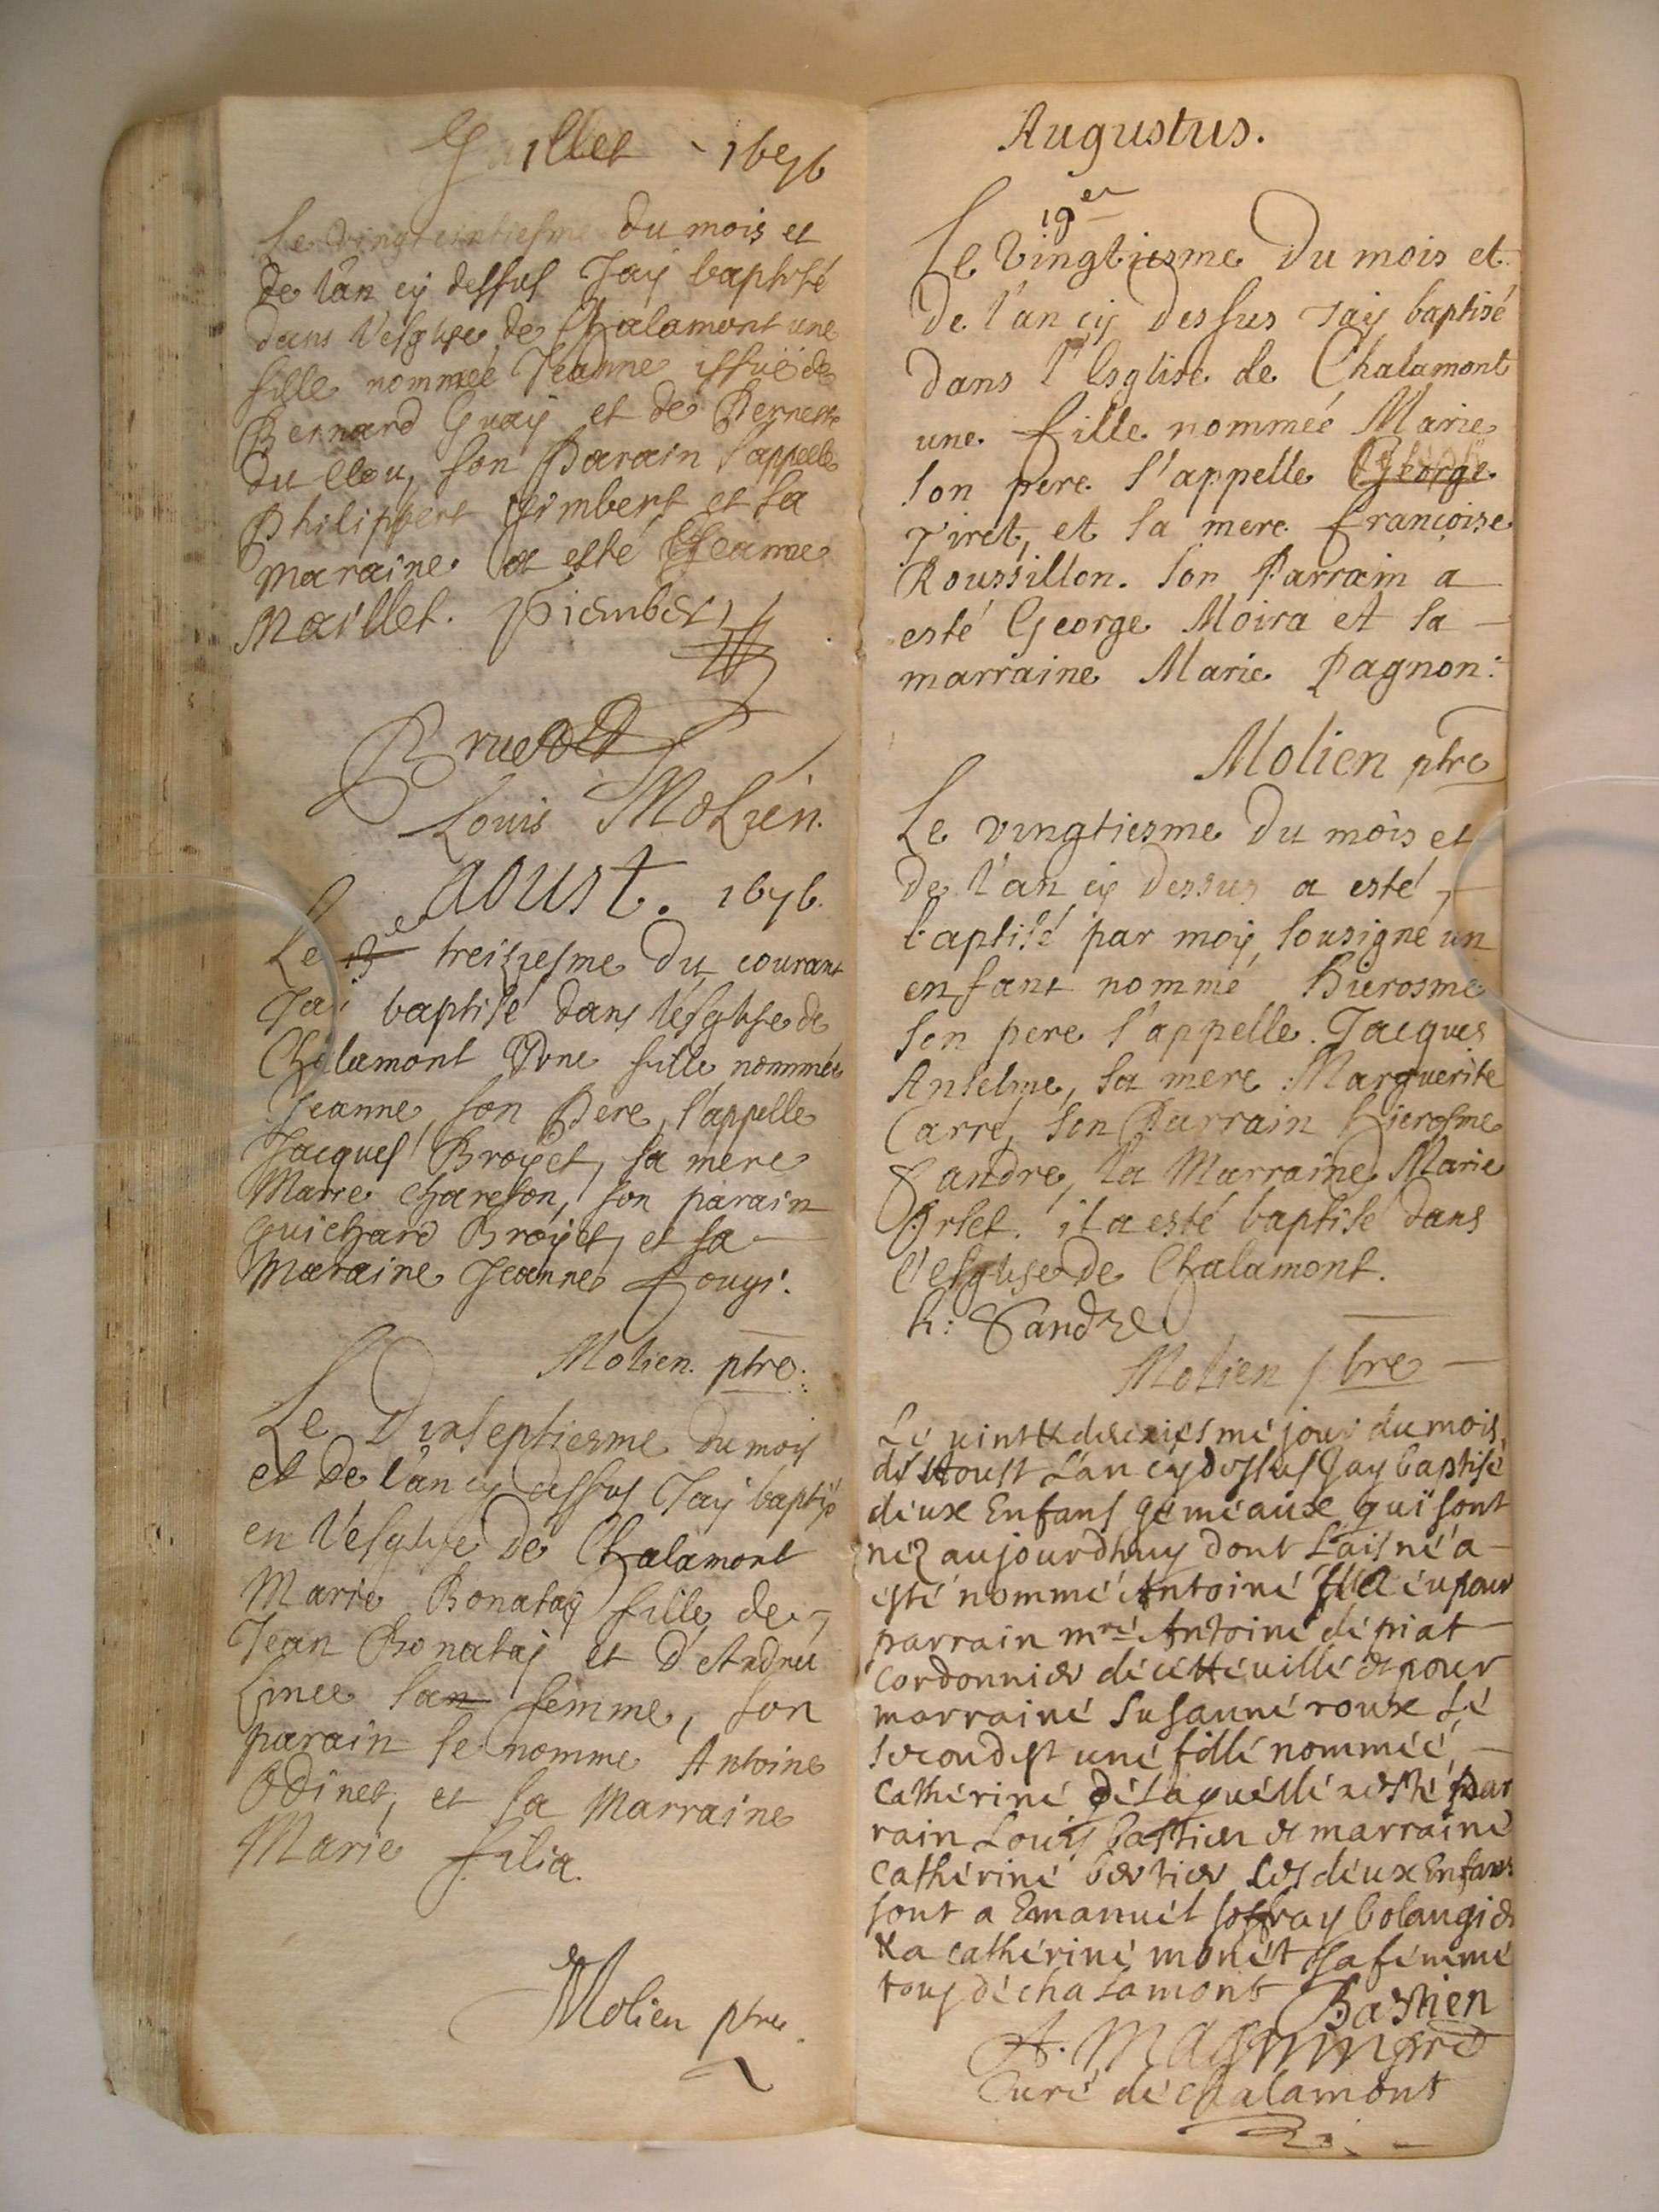 Juillet - 1676
Le vingt du mois et
de l'an cy dessus Jay baptisé
dans l'esglise de Chalamont une
fille nommeé Jeanne issuë de
Bernard Guay et de Pernette
du son Parain s'appelle
Philippert Gimbert et sa
maraine a esté Jeanne
Maillet.
Louis Molien.
aoust. 1676.
Le 13e treiziesme du courant
Jai baptisé dans l'esglise de
Chalamont Vne fille nommée
Jeanne, son Pere, s'appelle
Jacques Broyet, sa mere
Marie chareton, son parain
Guichard Broyet, et sa
Maraine Jeanne
Molien. ptre.
Le Dixseptiesme du mois
et de l'an cy dessus Jay baptisé
en l'esglise de Chalamont
Marie Bonatay fille de
Jean Bonatay et d'Andreé
Linee san femme, son
parain se nomme Antoine
Odinet, et sa Marraine
Marie filia.
Molien ptre.
Augustus.
19er
Le vingtiesme du mois et
de l'an cy dessus Jay baptisé
dans l'Esglise de Chalamont
une fille nommeé Marie
son pere s'appelle George
Tiret, et sa mere françoise
Roussillon. son Parrain a
esté George Moira et sa
marraine Marie Pagnon:
Molien ptre
Le vingtiesme du mois et
de l'an cy dessus a esté
baptisé par moy sousigné un
enfant nommé Hierosme
son pere s'appelle Jacques
Anselme, sa mere Marguerite
Carré, son Parrain hierosme
Sandre, la Marraine Marie
Orset. il a esté baptisé dans
l'esglise de Chalamont.
h: Sandre
Molien ptre
Le jour du mois
de Aoust L'an cy dessus Jay baptisé
deux Enfans gemeaux qui sont
nez aujourdhuy dont L'aisné a
esté nommé Antoine eu pour
parrain mre Antoine depiat
cordonnier de cette ville & pour
marraine susanne roux Le
second est une fille nommeé
Catherine de Laquelle a esté par
rain Louys bastien & marraine
Catherine bertier Les deux Enfans
sont a Emanuel soffray bolangier
& a catherine monet sa femme
tous de chalamont Bastien
A. Magnin
Curé de chalamont